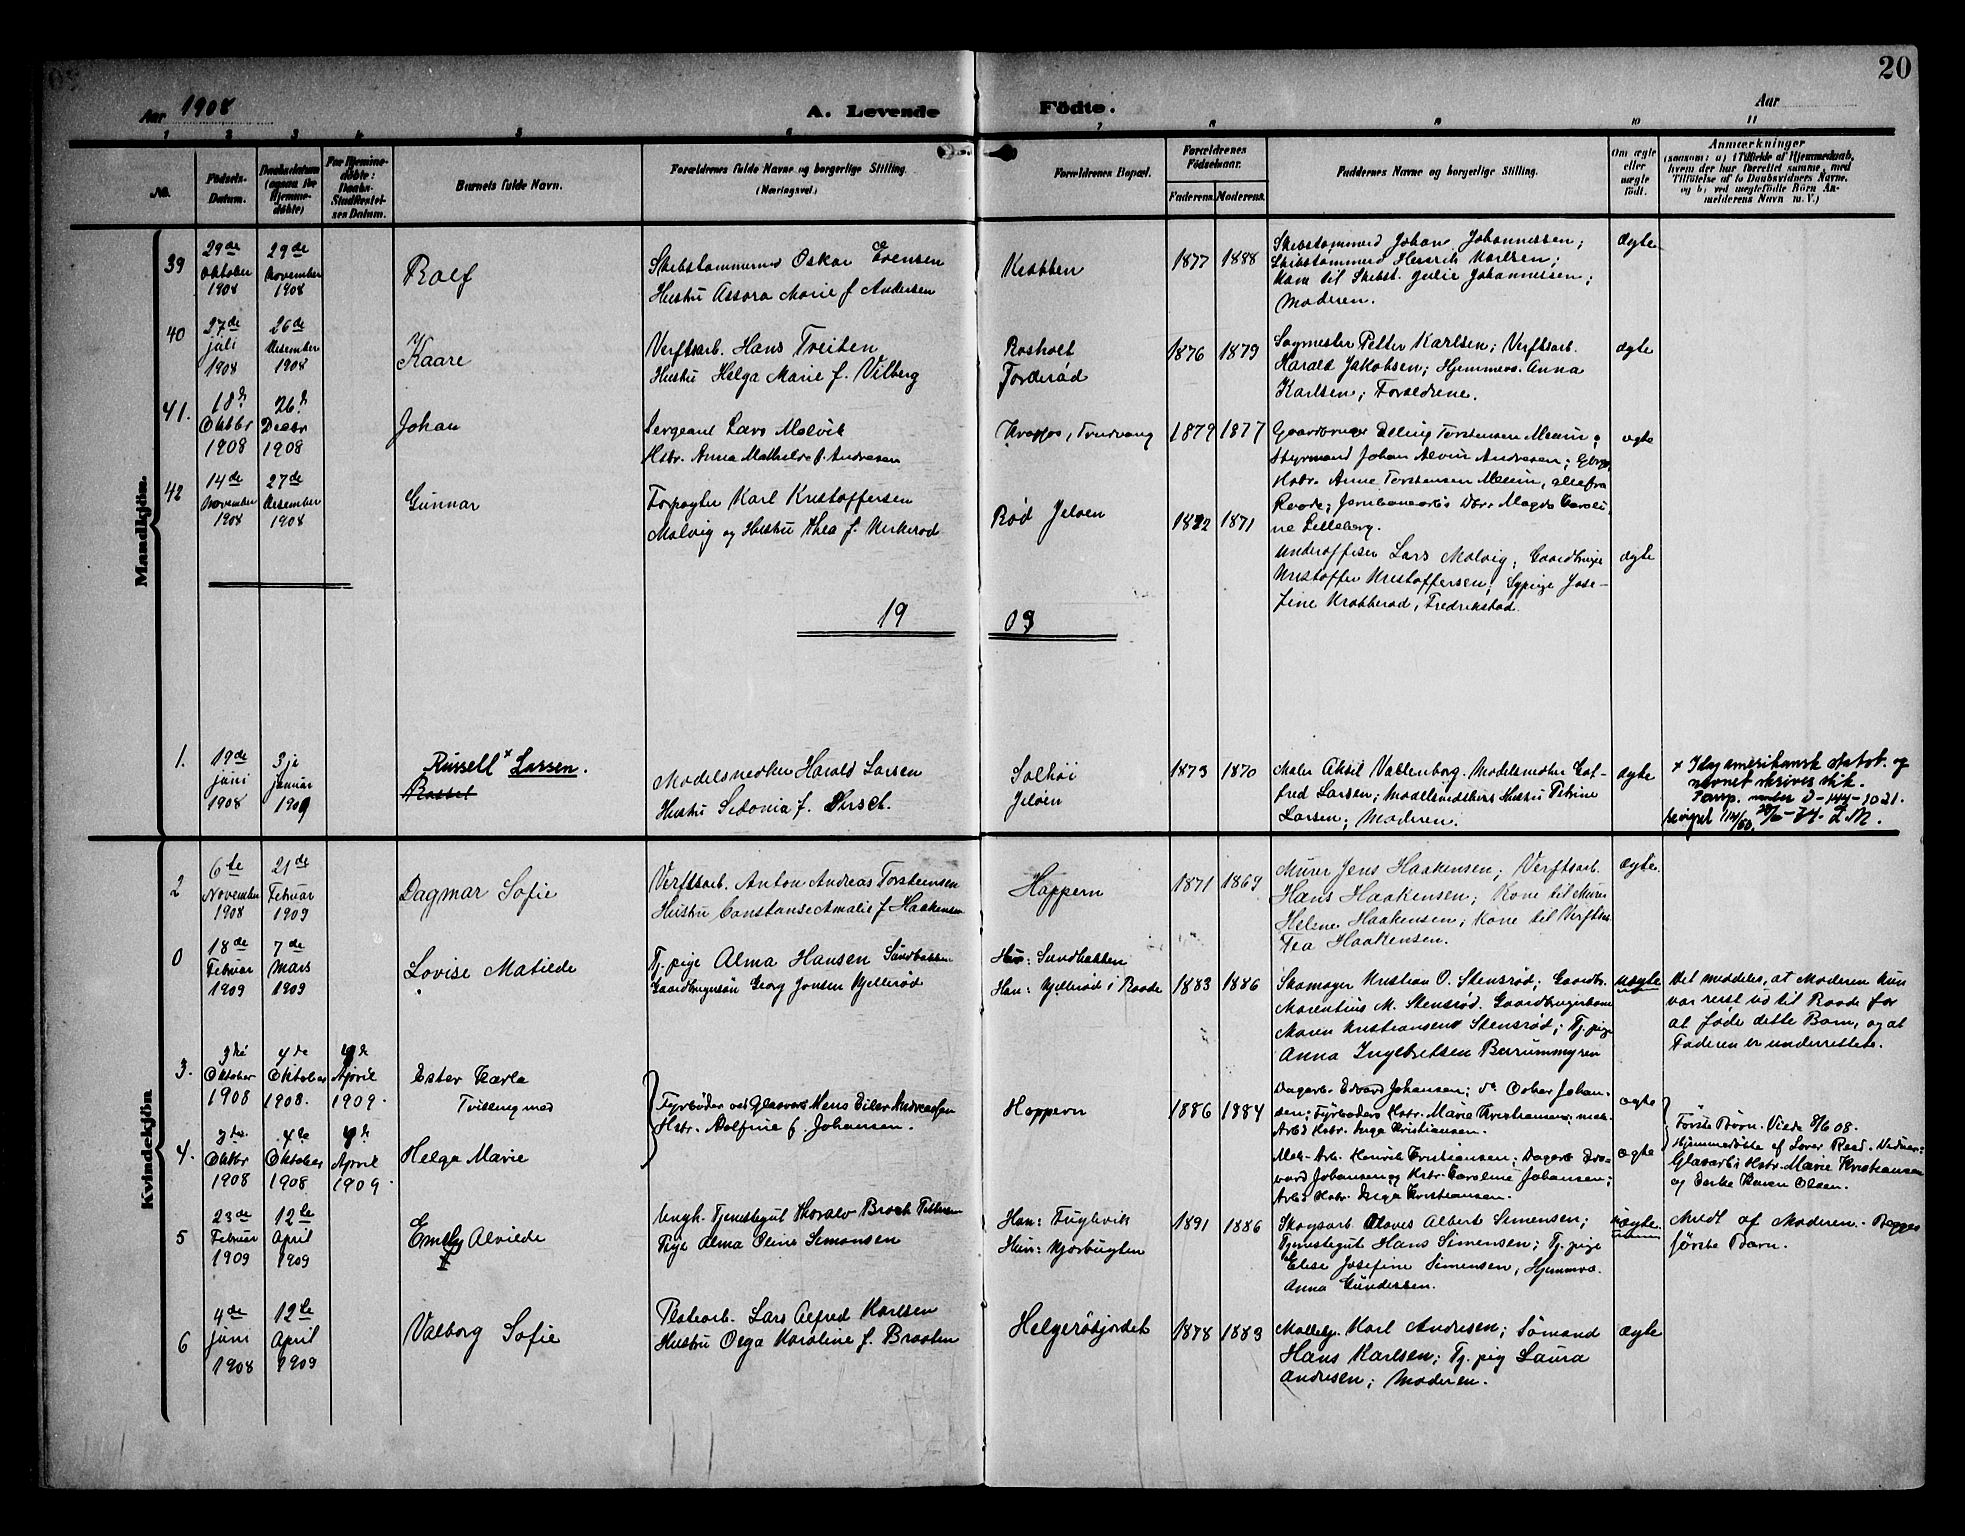 20
Aar 1908
A. Levende Födte.
Aar
1 2 3 4 5 6 7 8 9 10 11
No.
Födsels-
Datum.
Daabsdatum
(ogsaa for
Hjemme-
döbte)
For Hjemme-
döbte:
Daabs-
Stadfæstel-
ses Datum.
Barnets fulde Navn.
Forældrenes fulde Navne og borgerlige Stilling.
(Næringsvei.)
Forældrenes Bopæl.
Forældrenes
Födselsaar.
Faderens. Moderens.
Faddernes Navne og borgerlige Stilling.
Om ægte
eller
uægte
födt.
Anmærkninger
(saasom: a) i Tilfælde af Hjemmedaab,
hvem der har forrettet samme, med
Tilföielse af to Daabsvidners Navne,
og b) ved uægtefödte Börn An-
melderens Navn m. V.)
Mandkjön.
39
29de
Oktober
1908
29de
November
1908
Rolf
Skibstømmermd Oskar Evensen
Hustru Assora Marie f. Andersen
Krabben
1877 1888
Skibstømmermd Johan Johannessen;
Skibstømmermd Henrik Karlsen;
Kone til Skibst. Julie Johannessen;
Moderen.
ægte
40
27de
juli
1908
26de
Desember
1908
Kaare
Verftsarb. Hans Treiten
Hustru Helga Marie f. Vilberg
Rosholt
Torderød
1876 1879
Sagmester Petter Karlsen; Verftsarb.
Harald Jakobsen; Hjemmev. Anna
Karlsen; Forældrene.
ægte
41.
18d
Oktbr
1908
26d
Decbr
1908
Johan
Sergeant Lars Malvik
Hstr. Anna Mathilde f. Andresen
Krapfos, Trudvang
1879 1877
Gaardbruger Elling Torstensen Meum;
Styrmand Johan Alvin Andresen; Gbrgs.
Hstr. Anne Torstensen Meum, alle fra
Raade; Jernbanearb's Dtr. Magda Caroli-
ne Lilleberg.
ægte
42
14de
November
1908
27de
Desember
1908
Gunnar
Forpagter Karl Kristoffersen
Malvig og Hustru Thea f. Kirkerød
Rød Jeløen
1882 1871
Underoffiser Lars Malvig; Gaardbruger
Kristoffer Kristoffersen; Sypige Jose-
fine Krabberød, Fredrikstad.
ægte
19 09
1.
19de
juni
1908
3je
Januar
1909
Russell × Larsen.
Rassel
Modelsnedker Harald Larsen
Hustru Sidonia f. Hirsch.
Solhøi
Jeløen
1873 1870
Maler Aksel Vallenborg. Modelsnedker Got-
fred Larsen; Modelsnedkers Hustru Petrine
Larsen; Moderen.
ægte
× Iflg amerikansk statsb. og
navnet skrives slik.
Kvindekjön
2
6te
November
1908
21de
Februar
1909
Dagmar Sofie
Verftsarb. Anton Andreas Torstensen
Hustru Constanse Amalie f. Haakensen
Hoppern
1871 1869
Murer Jens Haakensen; Verftsarb.
Hans Haakensen; Kone til Murer
Helene Haakensen; Kone til Verftsa.
Tea Haakensen.
ægte
0
18de
Februar
1909
7de
Mars
1909
Lovise Matilde
Tj. pige Alma Hansen Sundbakken
Gaardbrugersøn Georg Jonsen Kjellerød
Hun: Sundbakken
Han: Kjellerød i Raade
1883 1886
Skomager Kristian O. Stensrød; Gaardbr.
Marentius M. Stensrød. Gaardbrugerkone
Maren Kristiansen Stensrød; Tj. pige
Anna Ingebretsen Bærummyren
uægte
Det meddeles, at Moderen kun
var reist ud til Raade for
at føde dette Barn, og at
Faderen er underrettet.
3.
3die
Oktober
1908
4de
Oktober
1908.
4de
April
1909.
Ester Karla
Tvilling med
Fyrbøder ved Glasverk Mens Eiler Andreassen
Hstr. Adolfine f. Johansen.
Hoppern
1886 1884
Dagarb. Edvard Johansen; do Oskar Johan-
sen; Fyrbøders Hstr. Marie Kristiansen; mek.
Arb's Hstr. Inga Kristiansen.
ægte
Første Børn. Viede 8/6 08.
Hjemmedøbte af Lærer Rød. Vidner:
Glasarb's Hstr. Marie Kristiansen
og Enke Karen Olsen.
4.
3die
Oktbr
1908
4de
Oktober
1908
4de
April
1909.
Helga Marie
Mek. Arb. Henrik Kristiansen; Dagarb. Ed-
vard Johansen og Hstr. Caroline Johansen;
Arb's Hstr. Inga Kristiansen.
ægte
5
23de
Februar
1909
12te
April
1909
Emely Alvilde
Ungk. Tjenestegut Thoralv Brock Pettersen
Pige Alma Oline Simonsen
Han: Fuglevik
Hun: Kjærbugten
1891 1886
Skogsarb. Olaves Albert Simensen;
Tjenestegut Hans Simensen; Tj. pige
Elise Josefine Simensen; Hjemmev.
Anna Gundersen
uægte
Meldt af Moderen. Begges
første Barn.
6
4de
Juni
1908
12te
April
1909
Valborg Sofie
Platearb. Lars Alfred Karlsen
Hustru Olga Karoline f. Braaten
Helgerødjordet
1878 1883
Mattelg. Karl Andresen; Sømand
Hans Karlsen; Tj. pig Laura
Andresen; Moderen.
ægte